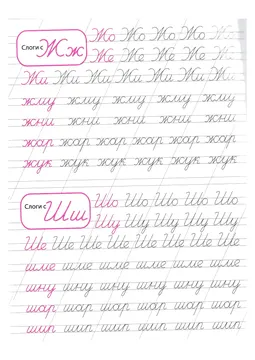 Слоги с Жж
Жо Жо Жо Жо Жо
Же Же Же Же Же
Жи Жи Жи Жи Жи Жи Жи
жму жму жму жму жму
жни жни жни жни жни
жар жар жар жар жар жар
жук жук жук жук жук жук
Слоги с Шш
Шо Шо Шо Шо Шо
Шу Шу Шу Шу Шу
Ше Ше Ше Ше Ше Ше Ше Ше
шме шме шме шме шме
шну шну шну шну шну
шар шар шар шар шар
шип шип шип шип шип